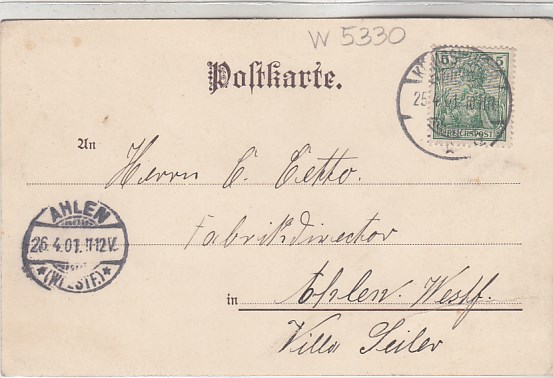 W 5330
Postkarte.
5 5
REICHSPOST
25.4.01
An
Herrn C. Cetto.
Fabrikdirector
AHLEN
26.4.01.11-12V.
*(WESTF.)*
in Ahlen. Westf.
Villa Seiler